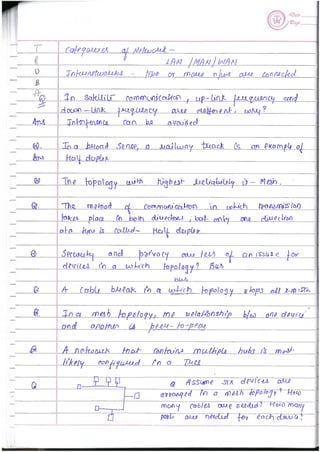 Categories of Network -
LAN / MAN / WAN
Internetworks - two or more n/ws are connected
Q In Satellite communication, up-link frequency and
down-link frequency are different, why?
Ans Interference can be avoided
Q. In a broad sense, a railway track is an example of
Ans Half duplex
Q The topology with highest reliability is - Mesh.
Q. The method of communication in which transmission
takes place in both directions, but only one direction
at a time is called - Half duplex
Q Security and privacy are less of an issue for
devices in a which topology? Bus
Bus
Q A cable break in a which topology stops all
Q In a mesh topology, the relationship b/w one device
and another is peer-to-peer
Q A network that contains multiple hubs is most
likely configured in a Tree
Q Q Assume six devices are
arranged in a mesh topology? How
many cables are needed? How many
ports are needed for each device?